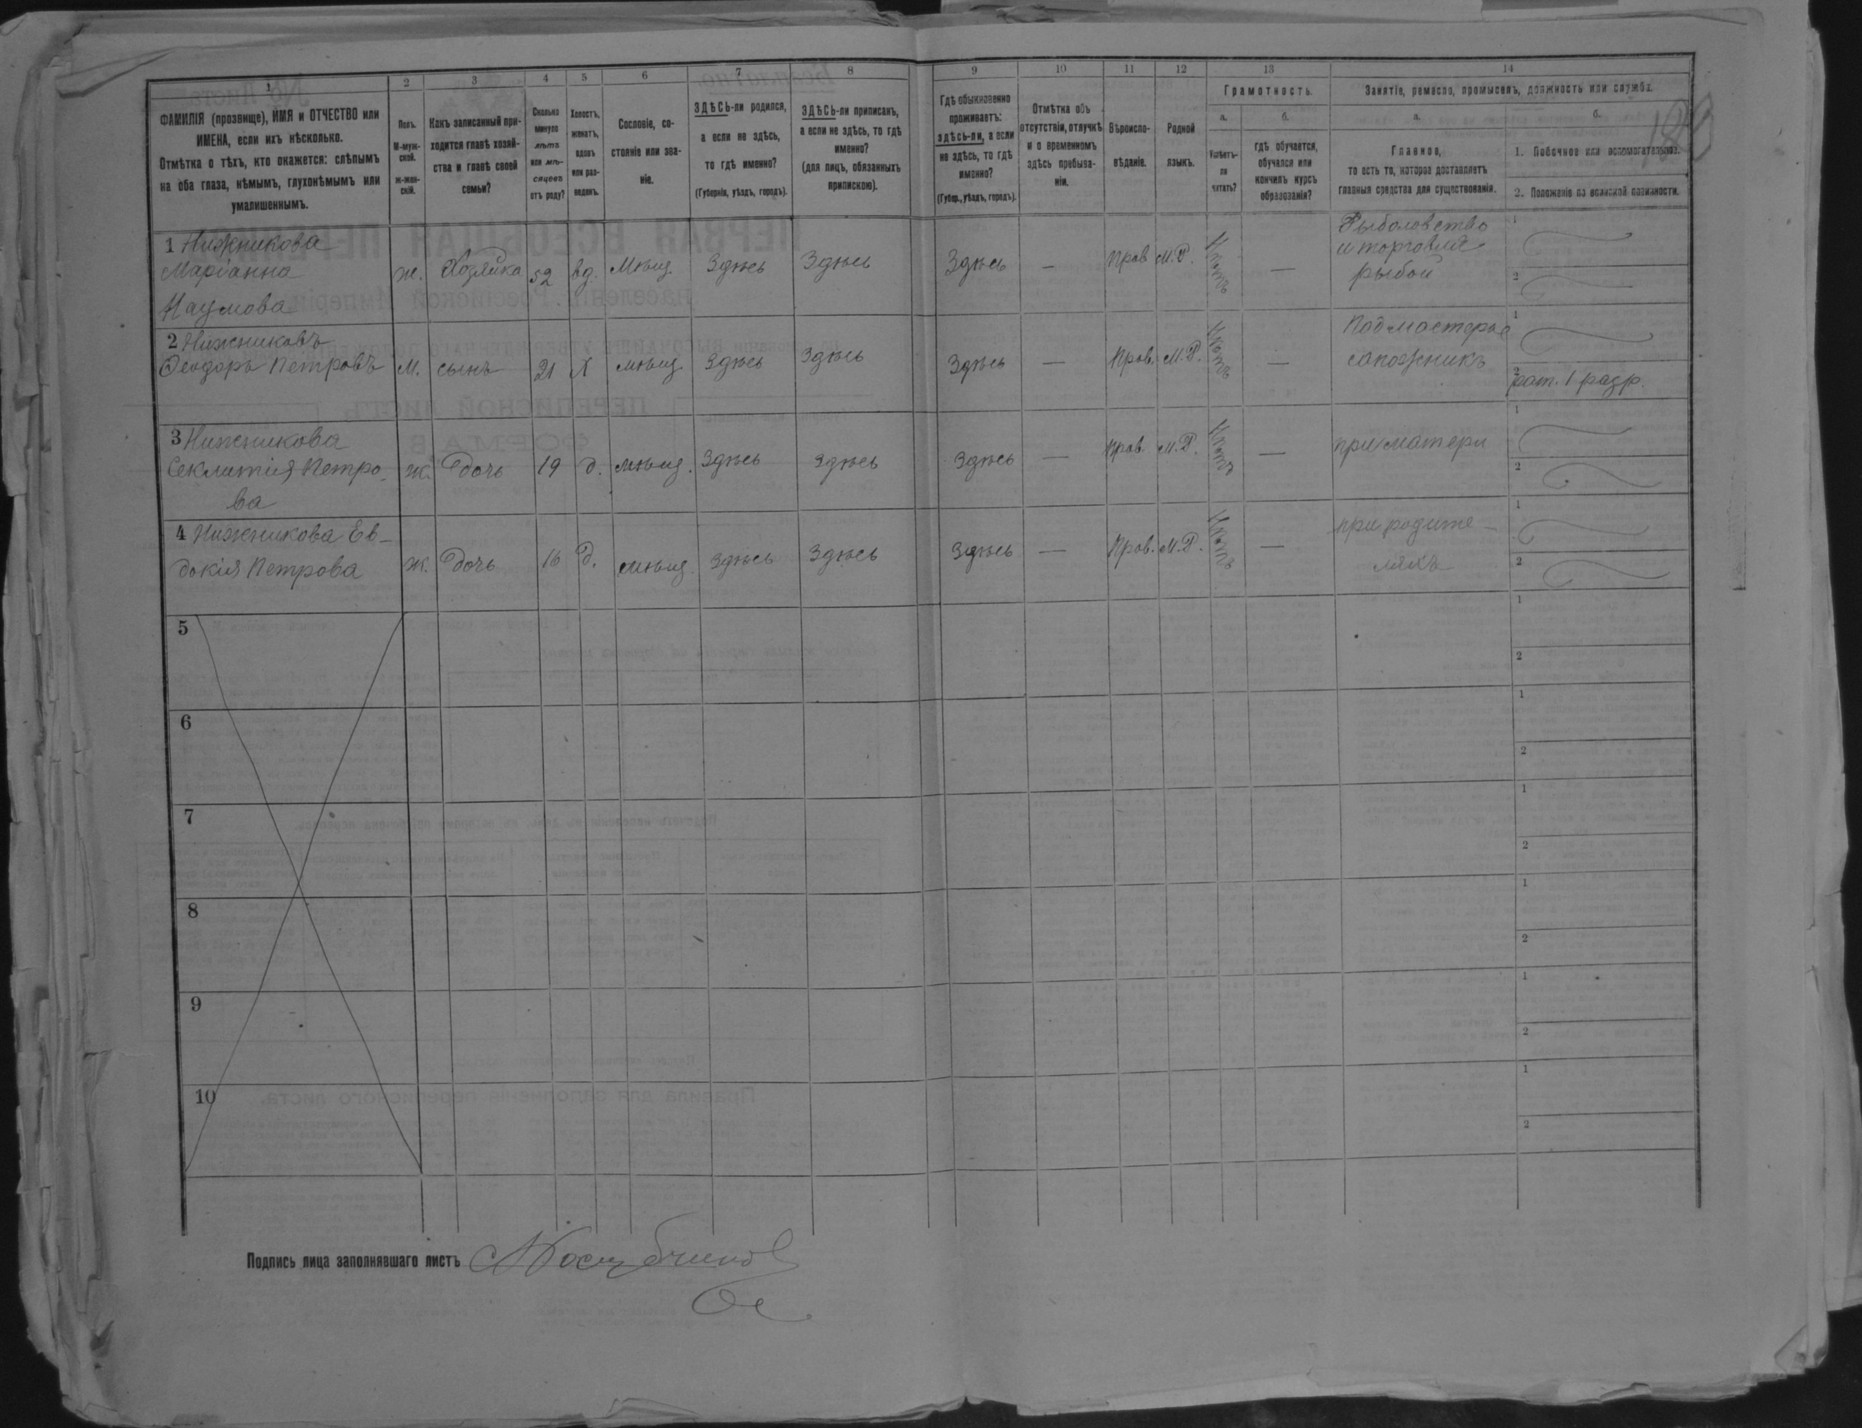 1
2
3
4
5
6
7
8
9
10
11
12
13
14
ФАМИЛІЯ (прозвище), ИМЯ и ОТЧЕСТВО или
ИМЕНА, если ихъ нѣсколько.
Отмѣтка о тѣхъ, кто окажется: слѣпымъ
на оба глаза, нѣмымъ, глухонѣмымъ или
умалишеннымъ.
Полъ.
М-муж-
ской.
ж-жен-
скій.
Какъ записанный при-
ходится главѣ хозяй-
ства и главѣ своей
семьи?
Сколько
минуло
лѣтъ
или мѣ-
сяцевъ
отъ роду?
Холостъ,
женатъ,
вдовъ
или раз-
веденъ.
Сословіе, со-
стояніе или зва-
ніе.
ЗДѢСЬ-ли родился,
а если не здѣсь,
то гдѣ именно?
(Губернія, уѣздъ, городъ).
ЗДѢСЬ-ли приписанъ,
а если не здѣсь, то гдѣ
именно?
(для лицъ, обязанныхъ
припискою).
Гдѣ обыкновенно
проживаетъ:
здѣсь-ли, а если
не здѣсь, то гдѣ
именно?
(Губер., уѣздъ, городъ).
Отмѣтка объ
отсутствіи, отлучкѣ
и о временномъ
здѣсь пребыва-
ніи.
Вѣроиспо-
вѣданіе.
Родной
языкъ.
Грамотность.
а.
Умѣетъ-
ли
читать?
б.
гдѣ обучается,
обучался или
кончилъ курсъ
образованія?
Занятіе, ремесло, промыселъ, должность или служба.
а.
Главное,
то есть то, которое доставляетъ
главныя средства для существованія.
б.
1. Побочное или вспомогательное.
2. Положеніе по воинской повинности.
1 Нижникова
Маріанна
Наумова
ж. Хозяйка 52 вд. Мѣщ. Здѣсь Здѣсь Здѣсь — Прав. М.Р. —
Рыболовство
и торговля
рыбой
1
2
2 Нижниковъ
Ѳеодоръ Петровъ
М. сынъ 21 Х мѣщ. Здѣсь Здѣсь Здѣсь — Прав. М.Р. —
Подмастерье
сапожникъ
1
2 рат. 1 разр.
3 Нижникова
Секлитія Петро-
ва
ж. дочь 19 д. мѣщ. Здѣсь Здѣсь Здѣсь — Прав. М.Р. —
при матери
1
2
4 Нижникова Ев-
докія Петрова
ж. дочь 16 д. мѣщ. Здѣсь Здѣсь Здѣсь — Прав. М.Р. —
при родите-
ляхъ
1
2
5
1
2
6
1
2
7
1
2
8
1
2
9
1
2
10
1
2
Подпись лица заполнявшаго листъ